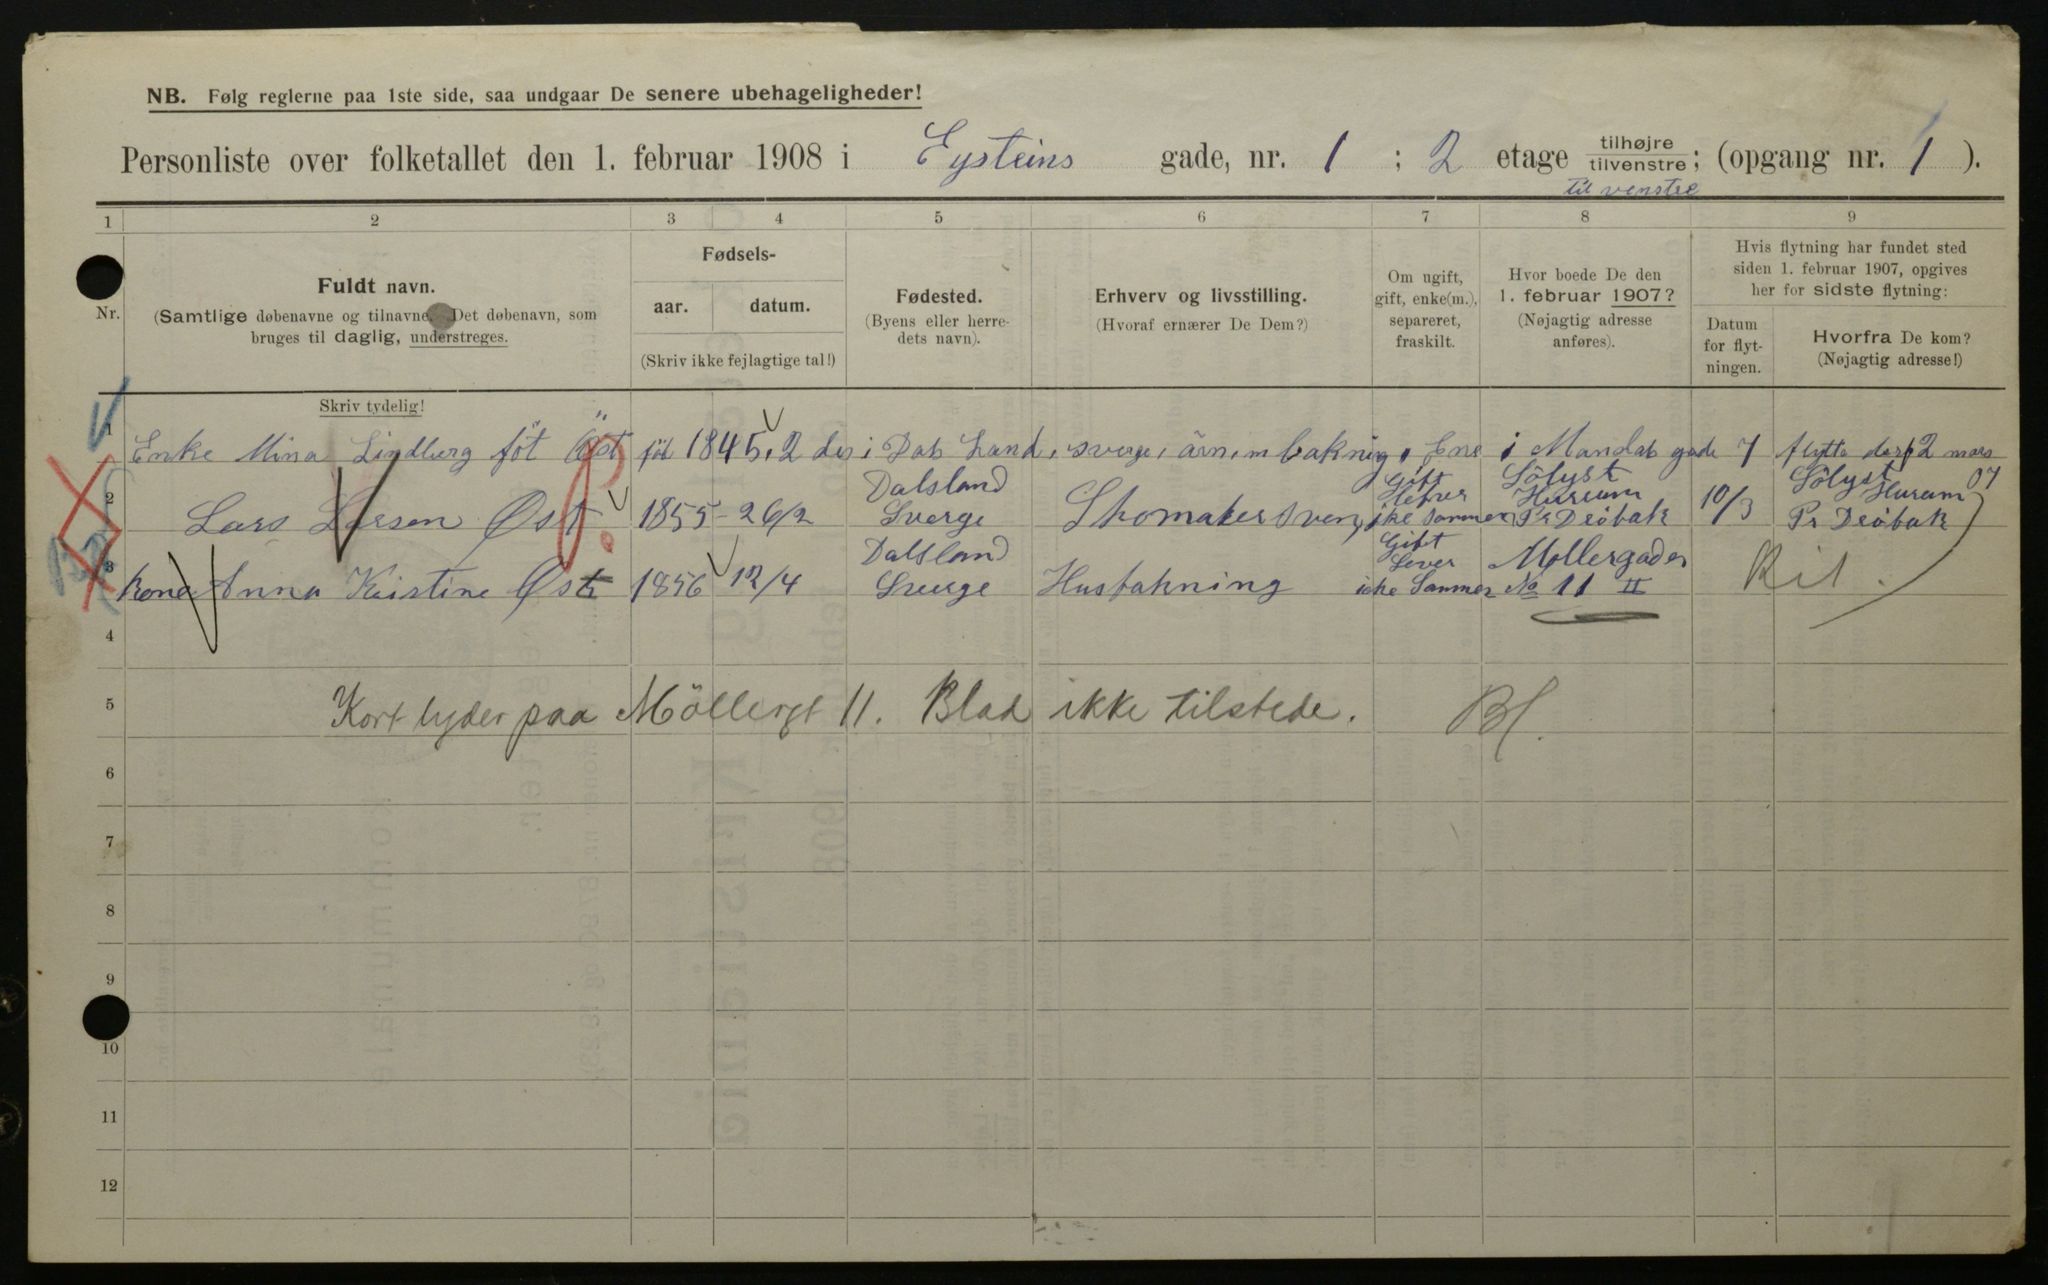 NB. Følg reglerne paa 1ste side, saa undgaar De senere ubehageligheder!
Personliste over folketallet den 1. februar 1908 i Eysteins gade, nr. 1; 2 etage tilhøjre tilvenstre; (opgang nr. 1).
til venstre
1 2 3 4 5 6 7 8 9
Nr.
Fuldt navn.
(Samtlige døbenavne og tilnavne. Det døbenavn, som
bruges til daglig, understreges.
Skriv tydelig!
Fødsels-
aar. datum.
(Skriv ikke fejlagtige tal!)
Fødested.
(Byens eller herre-
dets navn).
Erhverv og livsstilling.
(Hvoraf ernærer De Dem?)
Om ugift,
gift, enke(m.),
separeret,
fraskilt.
Hvor boede De den
1. februar 1907?
(Nøjagtig adresse
anføres).
Hvis flytning har fundet sted
siden 1. februar 1907, opgives
her for sidste flytning:
Datum
for flyt-
ningen.
Hvorfra De kom?
(Nøjagtig adresse!)
1 Enke Mina Lindberg föt Öst föt 1845. 2 des i Dals Land, sverge, bakning, Ene i Mandals gade 7 flytta 12 mars 07
2 Lars Larsen Øst 1855 26/2 Dalsland Sverge Skomakersven Gift ike sammen Sölyst Hurum Pr Dröbak 10/3 Sölyst Hurum Pr Dröbak
3 kone Anna Kristine Øst 1856 12/4 Dalsland Sverge Husbakning Gift Lever icke Sammen Møllergaden No 11 II
4
5 Kort lyder paa Möllergt 11. Blad ikke tilstede.
6
7
8
9
10
11
12